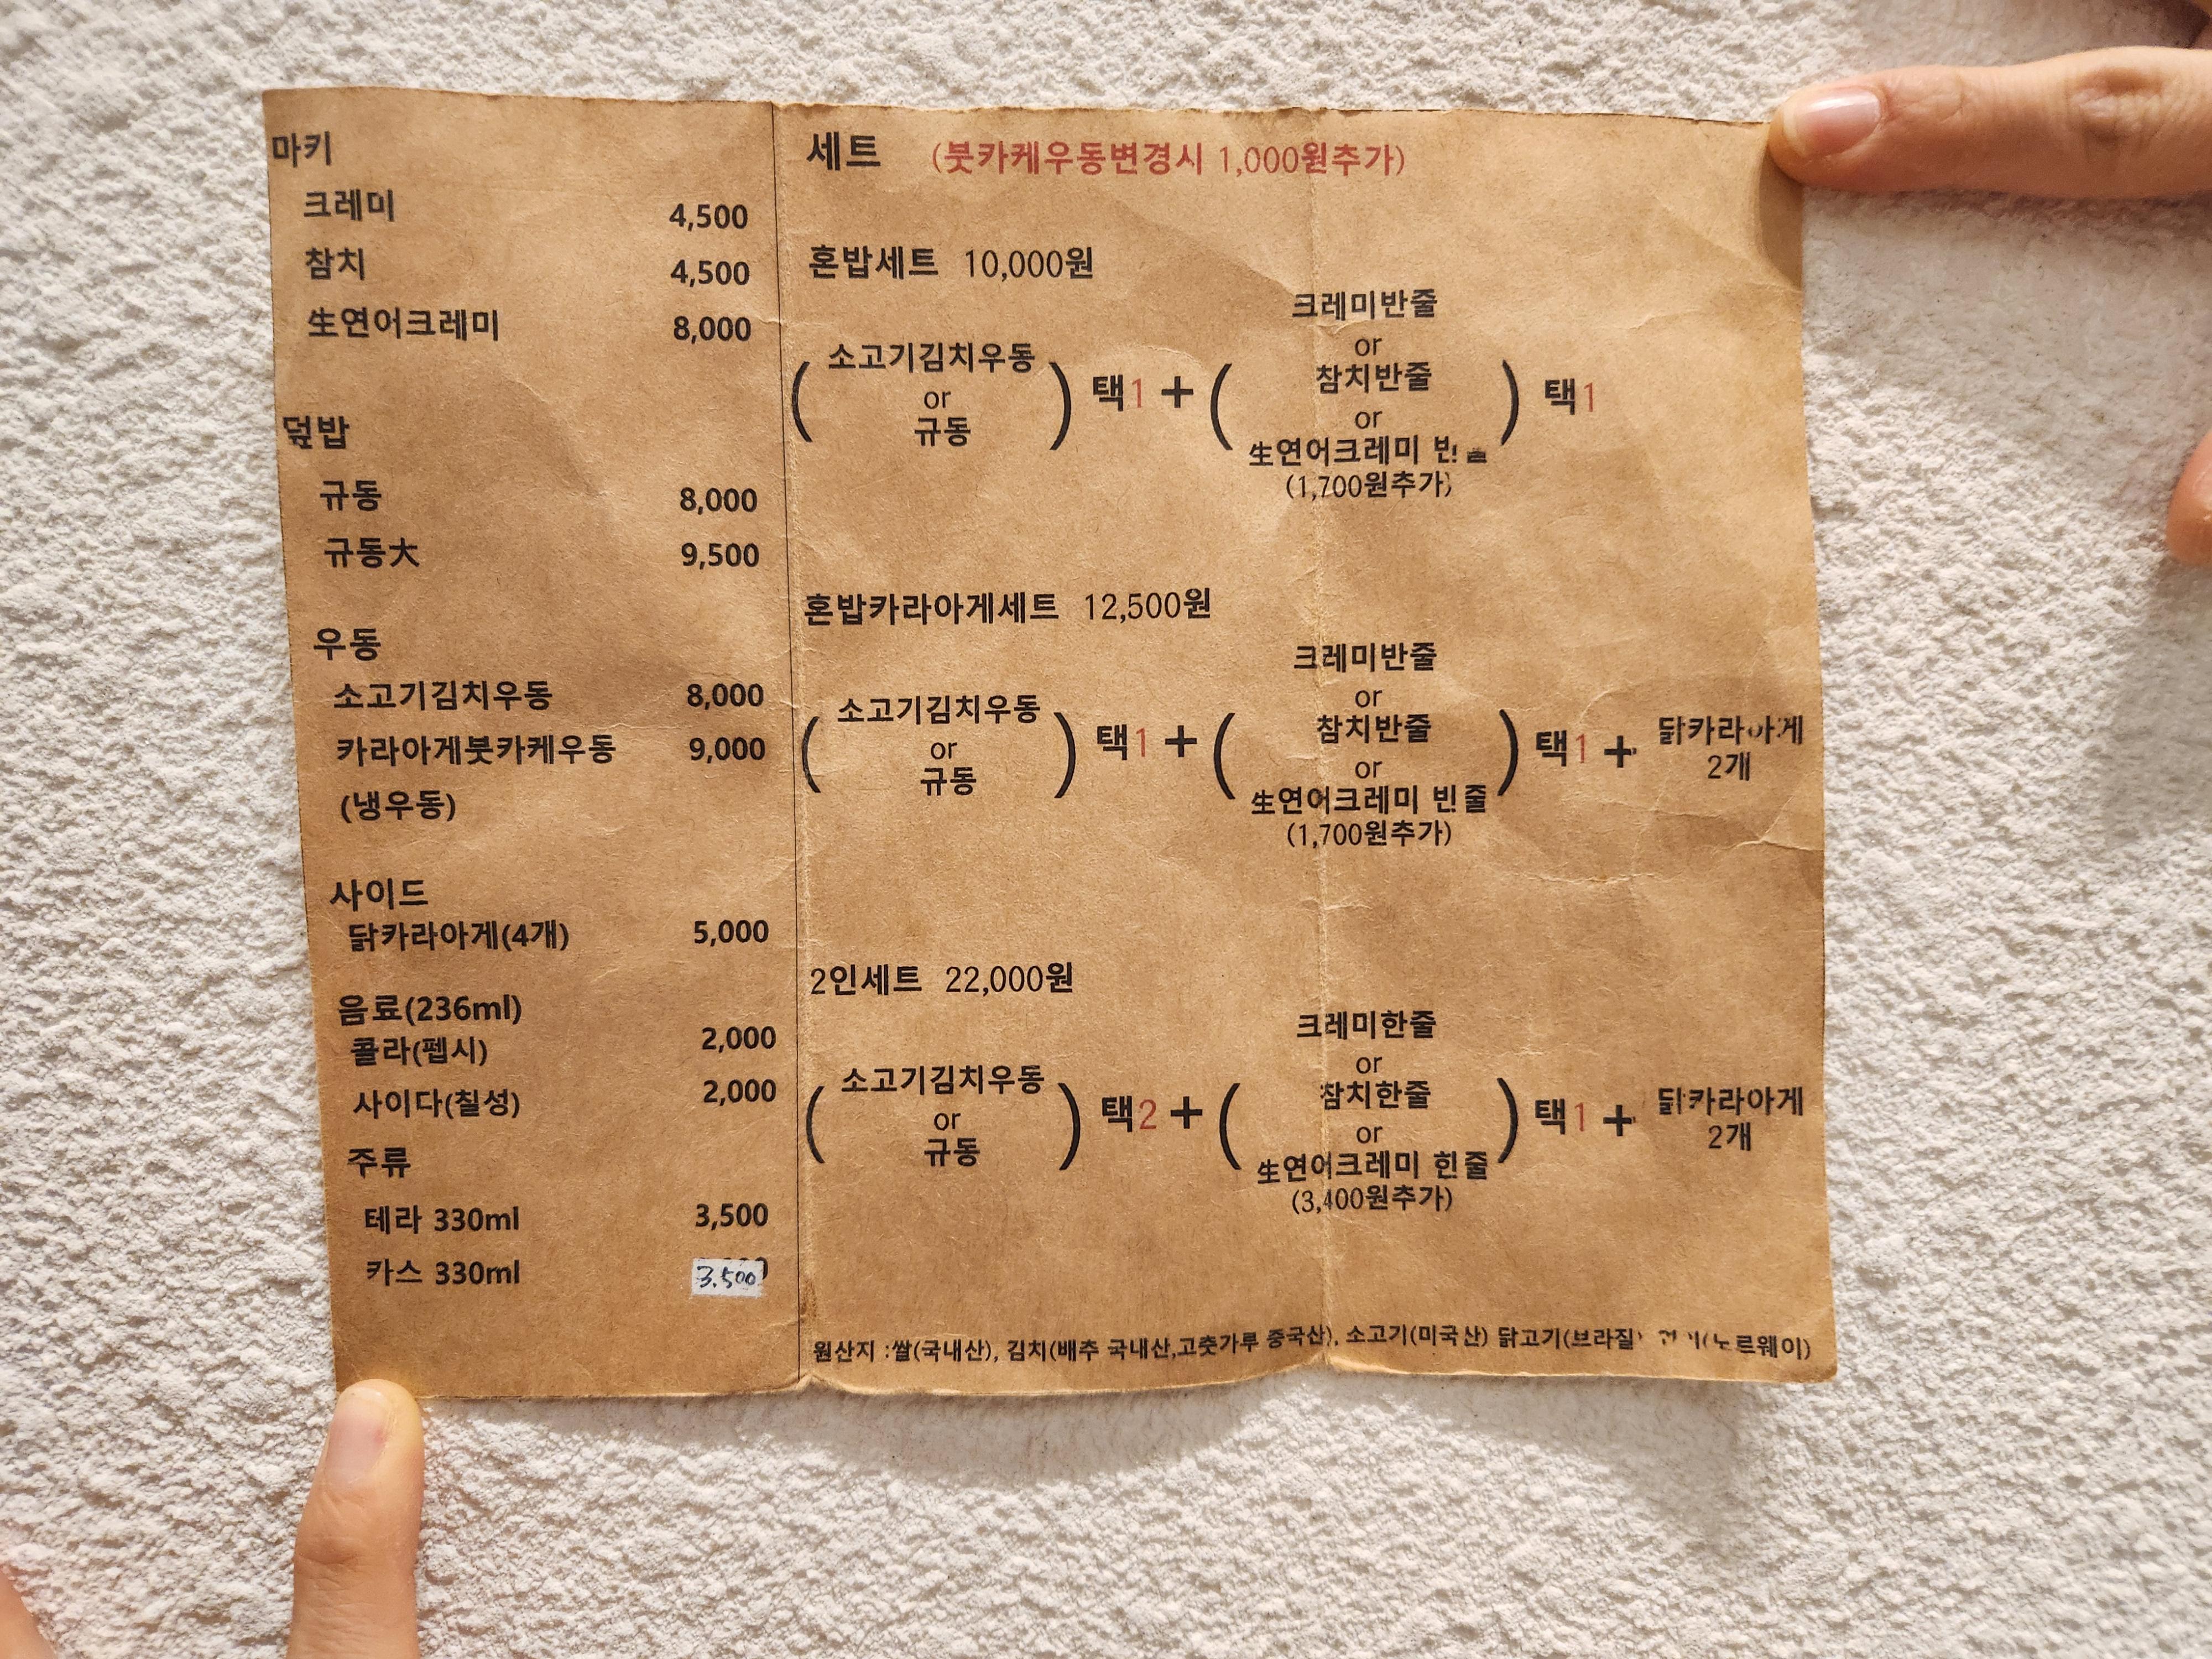 마키
크레미 4,500
참치 4,500
生연어크레미 8,000
덮밥
규동 8,000
규동大 9,500
우동
소고기김치우동 8,000
카라아게붓카케우동 9,000
(냉우동)
사이드
닭카라아게(4개) 5,000
음료(236ml)
콜라(펩시) 2,000
사이다(칠성) 2,000
주류
테라 330ml 3,500
카스 330ml 3.500
세트 (붓카케우동변경시 1,000원추가)
혼밥세트 10,000원
소고기김치우동
or
규동
택1 +
크레미반줄
or
참치반줄
or
生연어크레미 반줄
(1,700원추가)
택1
혼밥카라아게세트 12,500원
소고기김치우동
or
규동
택1 +
크레미반줄
or
참치반줄
or
生연어크레미 반줄
(1,700원추가)
택1 +
닭카라아게
2개
2인세트 22,000원
소고기김치우동
or
규동
택2 +
크레미한줄
or
참치한줄
or
生연어크레미 한줄
(3,400원추가)
택1 +
닭카라아게
2개
원산지 :쌀(국내산), 김치(배추 국내산,고춧가루 중국산), 소고기(미국산) 닭고기(브라질) (노르웨이)